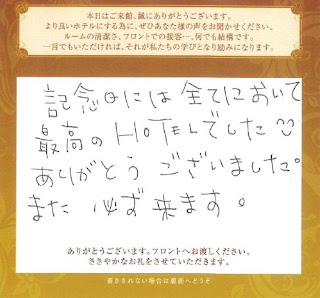 本日はご来館、誠にありがとうございます。
より良いホテルにする為に、ぜひあなた様の声をお聞かせください。
ルームの清潔さ、フロントでの接客…、何でも結構です。
一言でもいただければ、それが私たちの学びとなり励みになります。
記念日には全てにおいて
最高のHOTELでした
ありがとうございました。
また必ず来ます。
ありがとうございます。フロントへお渡しください。
ささやかなお礼をさせていただきます。
書ききれない場合は裏面へどうぞ